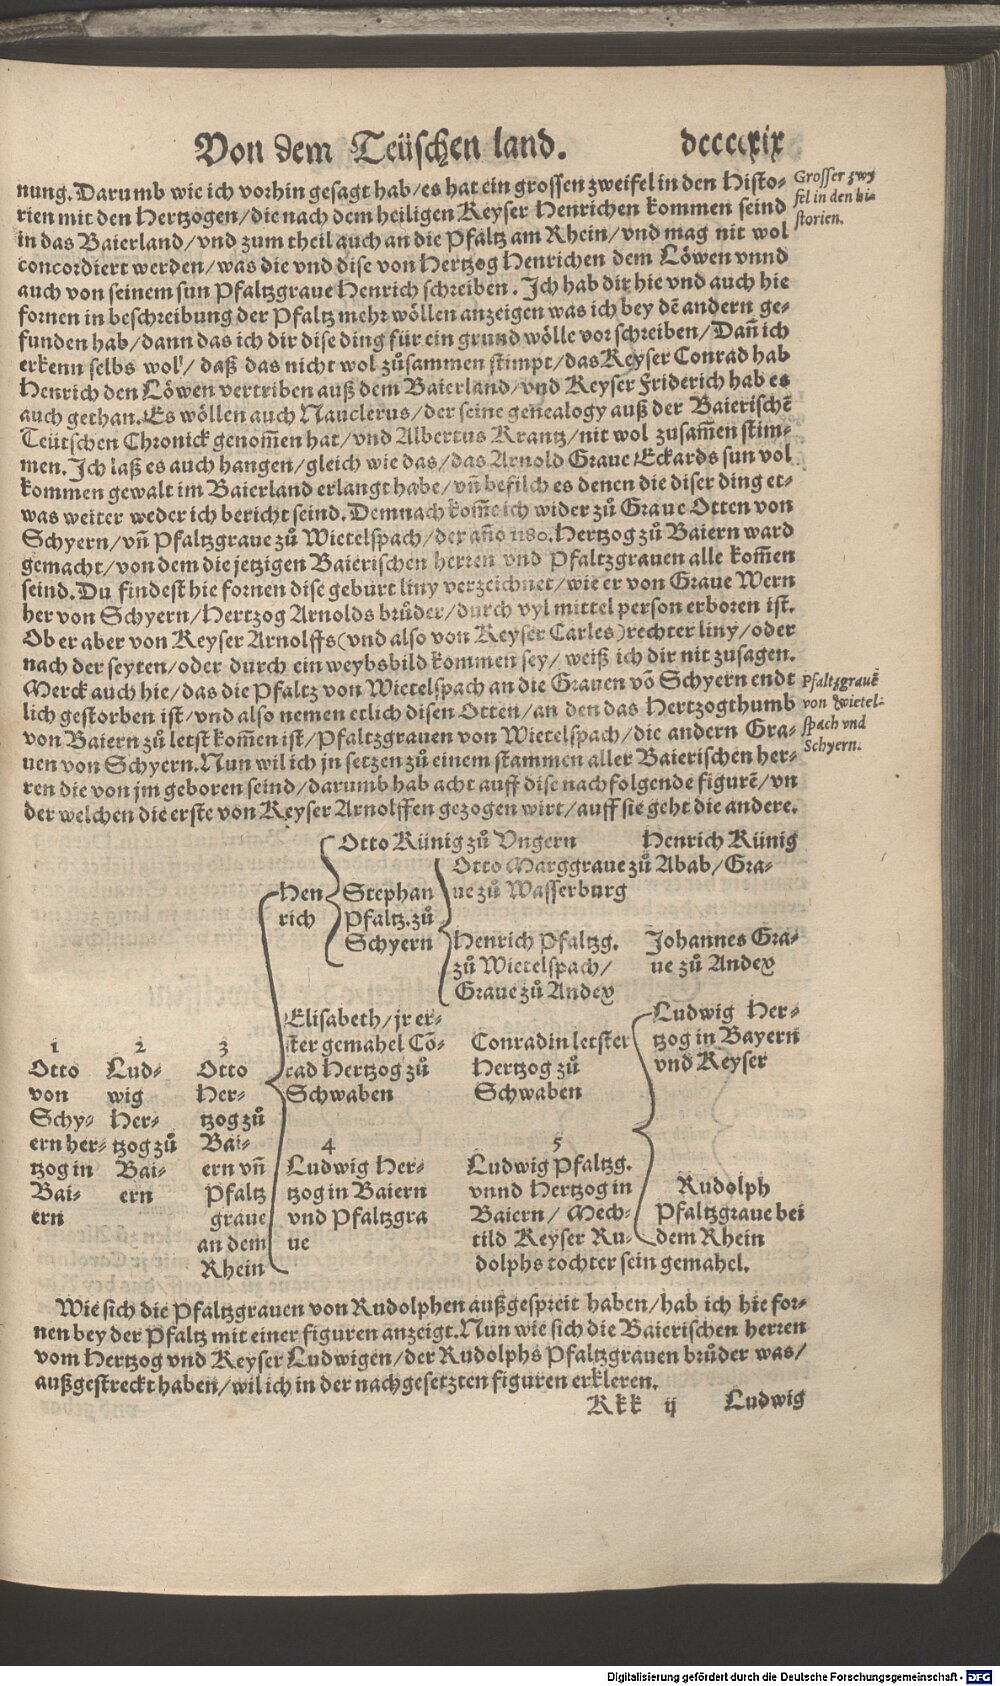 Von dem Teüschen land. dccccxix
nung. Darumb wie ich vorhin gesagt hab/es hat ein grossen zweifel in den Histo-
rien mit den Hertzogen/die nach dem heiligen Keyser Henrichen kommen seind
in das Baierland/vnd zum theil auch an die Pfaltz am Rhein/vnd mag nit wol
concordiert werden/was die vnd dise von Hertzog Henrichen dem Löwen vnnd
auch von seinem sun Pfaltzgraue Henrich schreiben. Ich hab dir hie vnd auch hie
fornen in beschreibung der Pfaltz mehr wöllen anzeigen was ich bey dē andern ge-
funden hab/dann das ich dir dise ding für ein grund wölle vorschreiben/Dañ ich
erkenn selbs wol/daß das nicht wol zůsammen stimpt/das Keyser Conrad hab
Henrich den Löwen vertriben auß dem Baierland/vnd Keyser Friderich hab es
auch gethan. Es wöllen auch Nauclerus/der seine genealogy auß der Baierischē
Teütschen Chronick genom̄en hat/vnd Albertus Krantz/nit wol zusam̄en stim-
men. Ich laß es auch hangen/gleich wie das/das Arnold Graue Eckards sun vol
kommen gewalt im Baierland erlangt habe/vñ befilch es denen die diser ding et-
was weiter weder ich bericht seind. Demnach kom̄e ich wider zů Graue Otten von
Schyern/vñ Pfaltzgraue zů Wietelspach/der año 1180. Hertzog zů Baiern ward
gemacht/von dem die jetzigen Baierischen herren vnd Pfaltzgrauen alle kom̄en
seind. Du findest hie fornen dise geburt liny verzeichnet/wie er von Graue Wern
her von Schyern/Hertzog Arnolds brůder/durch vyl mittel person erboren ist.
Ob er aber von Keyser Arnolffs (vnd also von Keyser Carles) rechter liny/oder
nach der seyten/oder durch ein weybsbild kommen sey/weiß ich dir nit zusagen.
Merck auch hie/das die Pfaltz von Wietelspach an die Grauen vō Schyern endt
lich gestorben ist/vnd also nemen etlich disen Otten/an den das Hertzogthumb
von Baiern zů letst kom̄en ist/Pfaltzgrauen von Wietelspach/die andern Gra-
uen von Schyern. Nun wil ich jn setzen zů einem stammen aller Baierischen her-
ren die von jm geboren seind/darumb hab acht auff dise nachfolgende figurē/vn
der welchen die erste von Keyser Arnolffen gezogen wirt/auff sie geht die andere.
Grosser zwy
fel in den hi-
storien.
Pfaltzgrauē
von Wietel-
spach vnd
Schyern.
1
Otto
von
Schy-
ern her-
tzog in
Bai-
ern
2
Lud-
wig
Her-
tzog zů
Bai-
ern
3
Otto
Her-
tzog zů
Bai-
ern vñ
Pfaltz
graue
an dem
Rhein
Hen
rich
Otto Künig zů Vngern
Stephan
Pfaltz. zů
Schyern
Otto Marggraue zů Abab/Gra-
ue zů Wasserburg
Henrich Pfaltzg.
zů Wietelspach/
Graue zů Andex
Henrich Künig
Johannes Gra-
ue zů Andex
Elisabeth/jr er-
ster gemahel Cō-
rad Hertzog zů
Schwaben
Conradin letster
Hertzog zů
Schwaben
4
Ludwig Her-
tzog in Baiern
vnd Pfaltzgra
ue
5
Ludwig Pfaltzg.
vnnd Hertzog in
Baiern/Mech-
tild Keyser Ru-
dolphs tochter sein gemahel.
Ludwig Her-
tzog in Bayern
vnd Keyser
Rudolph
Pfaltzgraue bei
dem Rhein
Wie sich die Pfaltzgrauen von Rudolphen außgespreit haben/hab ich hie for-
nen bey der Pfaltz mit einer figuren anzeigt. Nun wie sich die Baierischen herren
vom Hertzog vnd Keyser Ludwigen/der Rudolphs Pfaltzgrauen brůder was/
außgestreckt haben/wil ich in der nachgesetzten figuren erkleren.
Kkk ij Ludwig
Digitalisierung gefördert durch die Deutsche Forschungsgemeinschaft - DFG